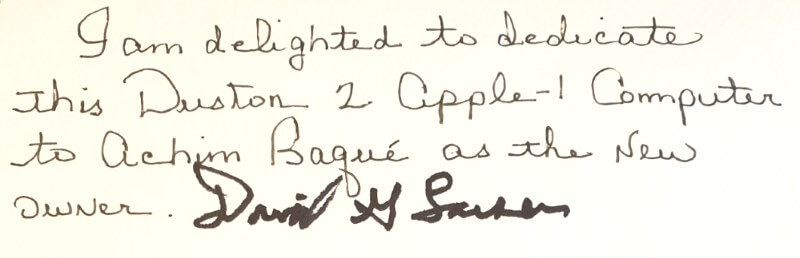 I am delighted to dedicate
this Duston 2 Apple-1 Computer
to Achim Baqué as the New
owner. David